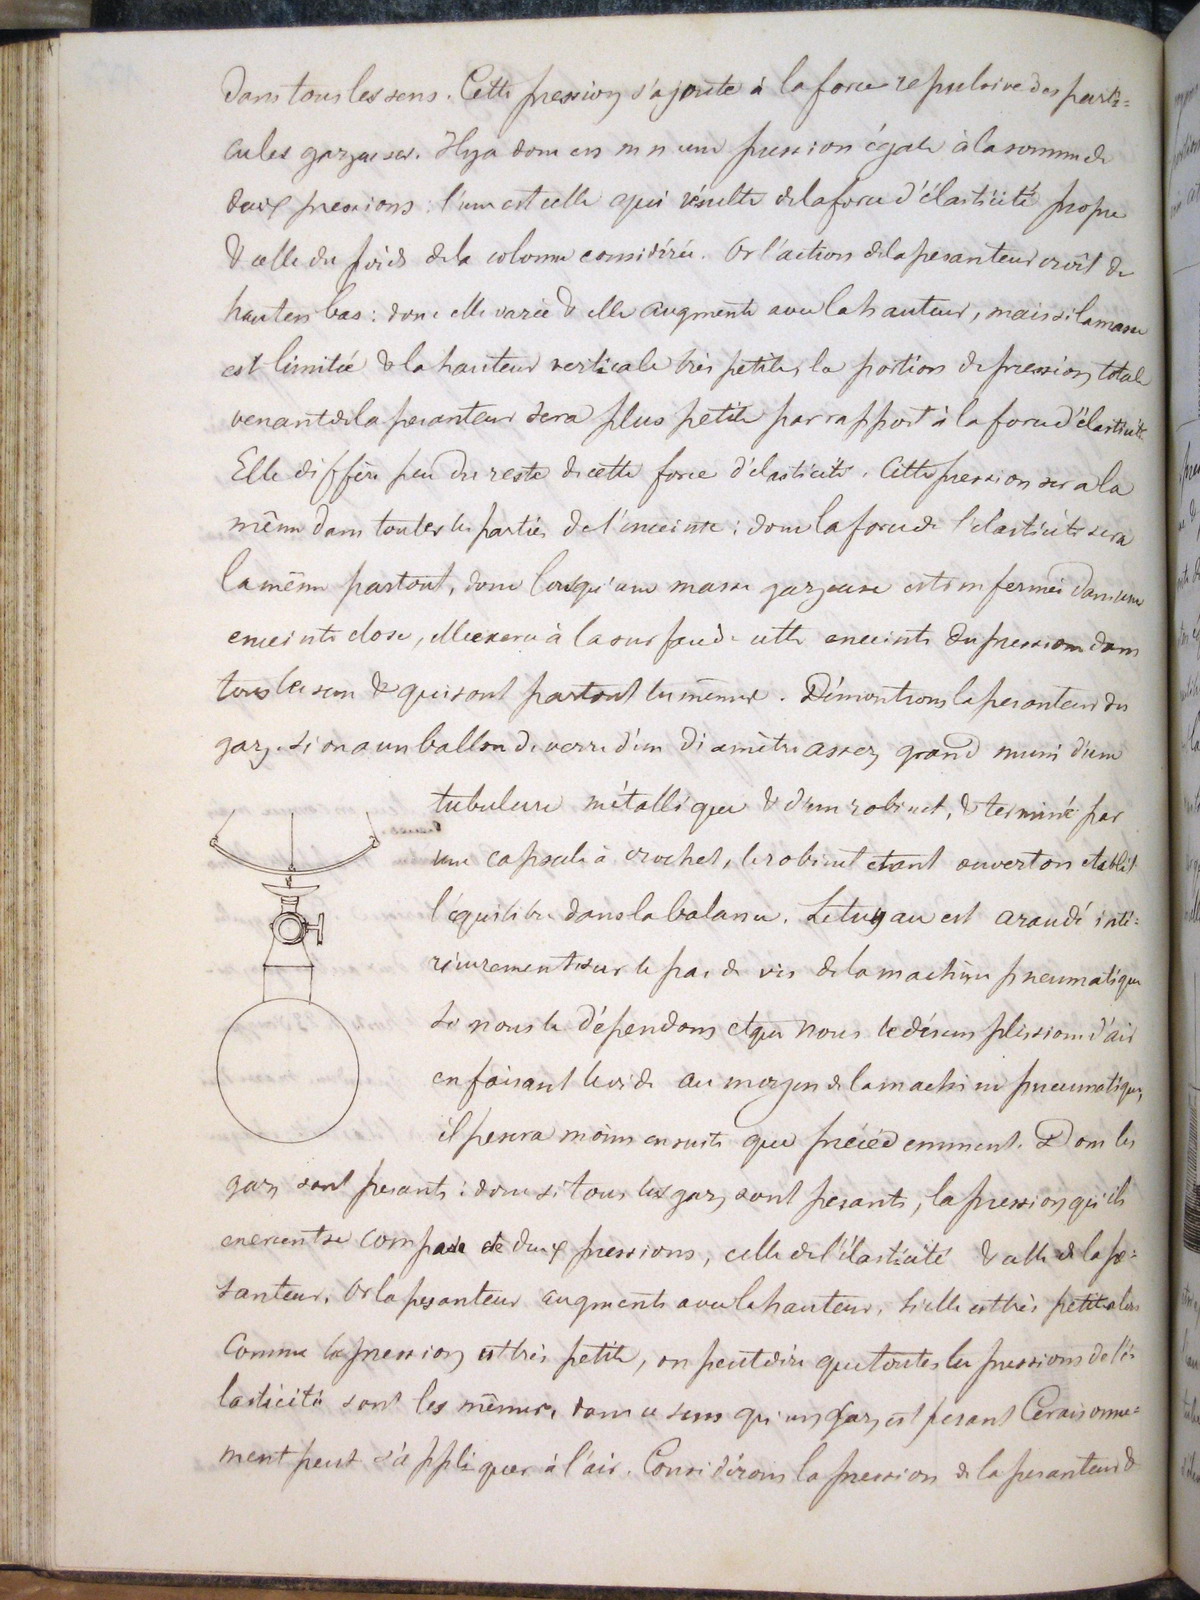 dans tous les sens. Cette pression s'ajoute à la force repulsive des parti=
cules gazeuses. Il y a donc en m n une pression égale à la somme de
deux pressions : l'une est celle qui résulte de la force d'élasticité propre
& celle du poids de la colonne considérée. Or l'action de la pesanteur croît de
haut en bas : donc elle varie & elle augmente avec la hauteur, mais si la masse
est limitée & la hauteur verticale très petite, la portion de pression totale
venant de la pesanteur sera plus petite par rapport à la force d'élasticité.
Elle diffère peu du reste de cette force d'élasticité. Cette pression sera la
même dans toutes les parties de l'enceinte : donc la force de l'élasticité sera
la même partout, donc lorsqu'une masse gazeuse est enfermée dans une
enceinte close, elle exerce à la surface de cette enceinte des pressions dans
tous les sens & qui sont partout les mêmes. Démontrons la pesanteur des
gaz. Si on a un ballon de verre d'un diamètre assez grand muni d'une
tubulure métallique & d'un robinet, & terminé par
une capsule à crochet, le robinet étant ouvert on établit
l'équilibre dans la balance. Le tuyau est araudé inté=
rieurement sur le pas de vis de la machine pneumatique
Si nous le dépendons et que nous le désemplissions d'air
en faisant le vide au moyen de la machine pneumatique,
il pesera moins ensuite que précédemment. Donc les
gaz sont pesants : donc si tous les gaz sont pesants, la pression qu'ils
exercent se compose de deux pressions, celle de l'élasticité & celle de la pe=
santeur. Or la pesanteur augmente avec la hauteur. Si elle est très petite alors
comme la pression est très petite, on peut dire que toutes les pressions de l'é
lasticité sont les mêmes, dans ce sens qu'un gaz est pesant Ce raisonne=
ment peut s'appliquer à l'air. Considérons la pression de la pesanteur &